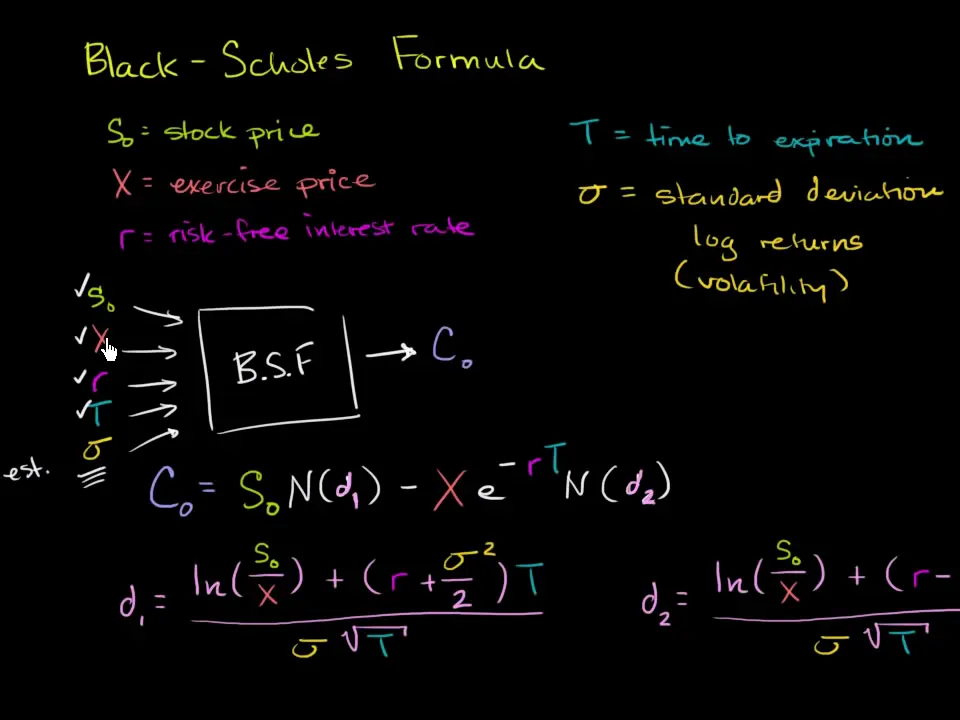 Black - Scholes Formula
S₀ = stock price
X = exercise price
r = risk-free interest rate
T = time to expiration
σ = standard deviation
log returns
(volatility)
✓ S₀
✓ X
✓ r
✓ T
σ
est.
B.S.F
C₀
C₀ = S₀ N(d₁) - X e^(-rT) N(d₂)
d₁ = (ln(S₀/X) + (r + σ²/2) T) / (σ √T)
d₂ = (ln(S₀/X) + (r - / (σ √T)